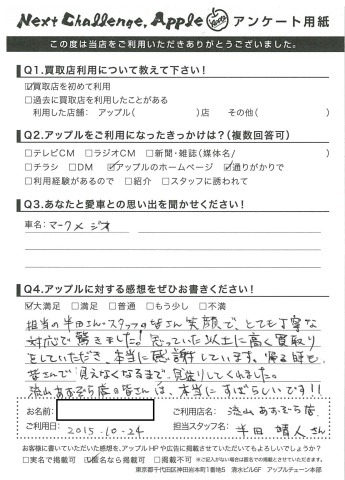 Next Challenge, Apple アンケート用紙
この度は当店をご利用いただきありがとうございました。
Q1.買取店利用について教えて下さい!
☑買取店を初めて利用
□過去に買取店を利用したことがある
利用した店舗: アップル( )店 その他( )
Q2.アップルをご利用になったきっかけは?(複数回答可)
□テレビCM □ラジオCM □新聞・雑誌(媒体名/ )
□チラシ □DM ☑アップルのホームページ ☑通りがかりで
□利用経験があるので □紹介 □スタッフに誘われて
Q3.あなたと愛車との思い出を聞かせてください!
車名:マークX ジオ
Q4.アップルに対する感想をぜひお書きください!
☑大満足 □満足 □普通 □もう少し □不満
担当の半田さん・スタッフの皆さん笑顔で、とても丁寧な
対応で驚きました!思っていた以上に高く買取り
をしていただき、本当に感謝しています。帰る時も、
皆さんで見えなくなるまで、見送りしてくれました。
流山あおぞら店の皆さんは、本当にすばらしいです!!
お名前: ご利用店名:流山あおぞら店
ご利用日:2015.10.24 担当スタッフ名:半田 晴人さん
お客様に書いていただいた感想を、アップルHPや広告に掲載させていただいてもよろしいでしょうか?
□実名で掲載可 ☑匿名なら掲載可 □掲載不可 ※ご記入がない場合は匿名での掲載とさせていただきます。
東京都千代田区神田岩本町1番地5 清水ビル6F アップルチェーン本部